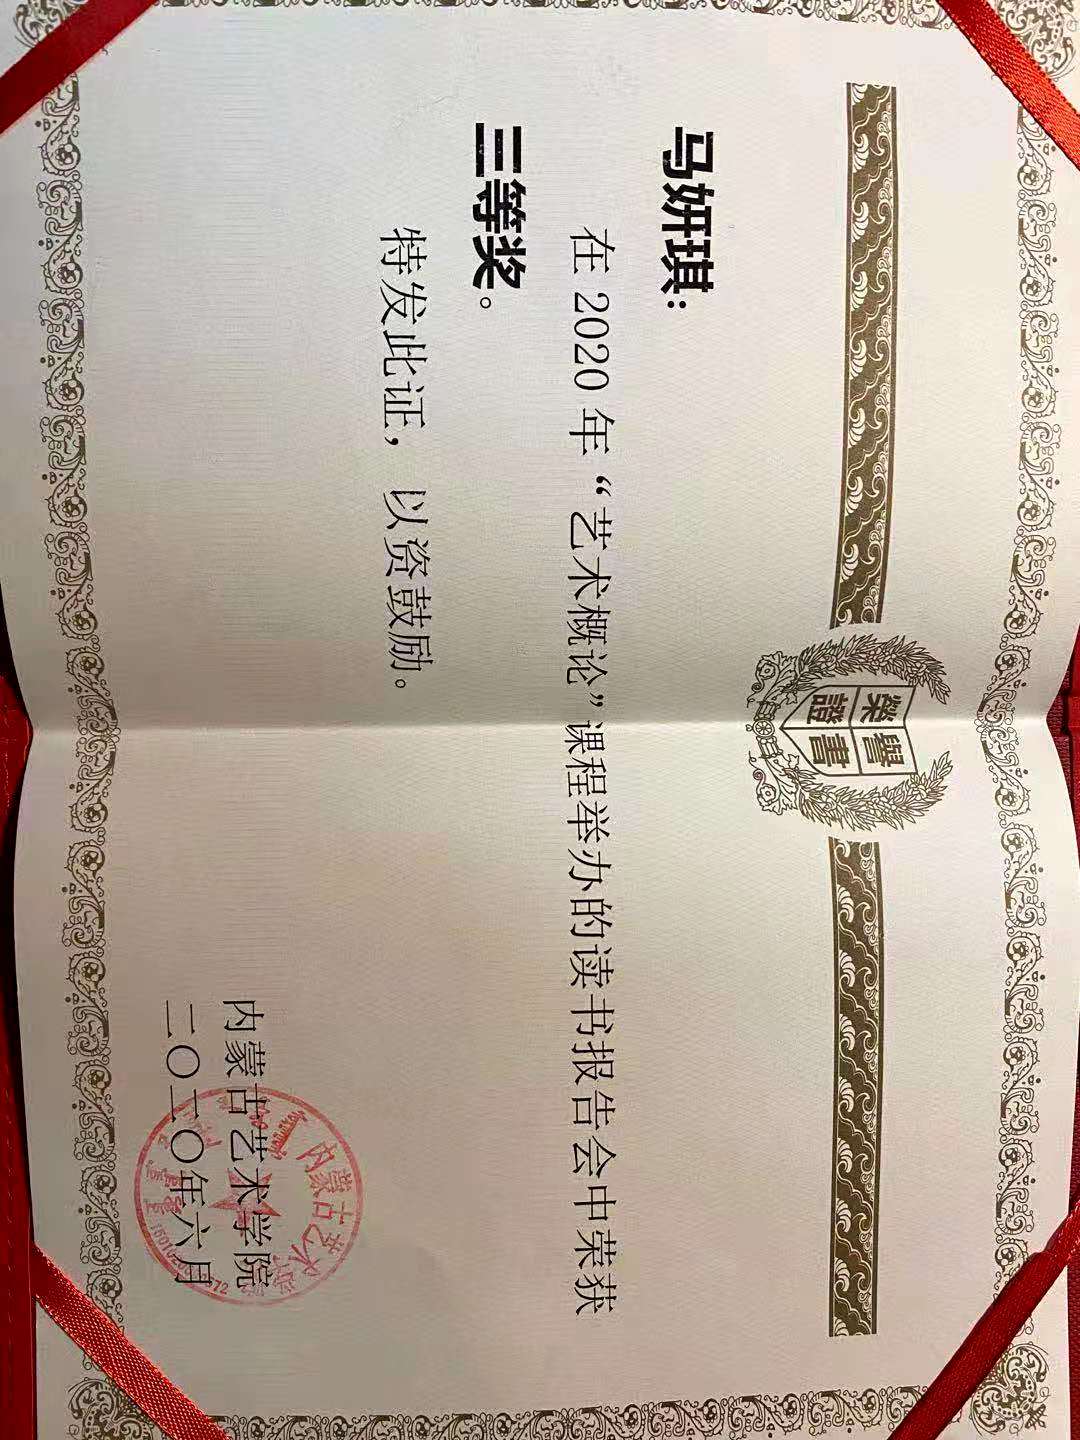 榮譽
證書
马妍琪:
在 2020 年“艺术概论”课程举办的读书报告会中荣获
三等奖。
特发此证，以资鼓励。
内蒙古艺术学院
二〇二〇年六月
内蒙古艺术